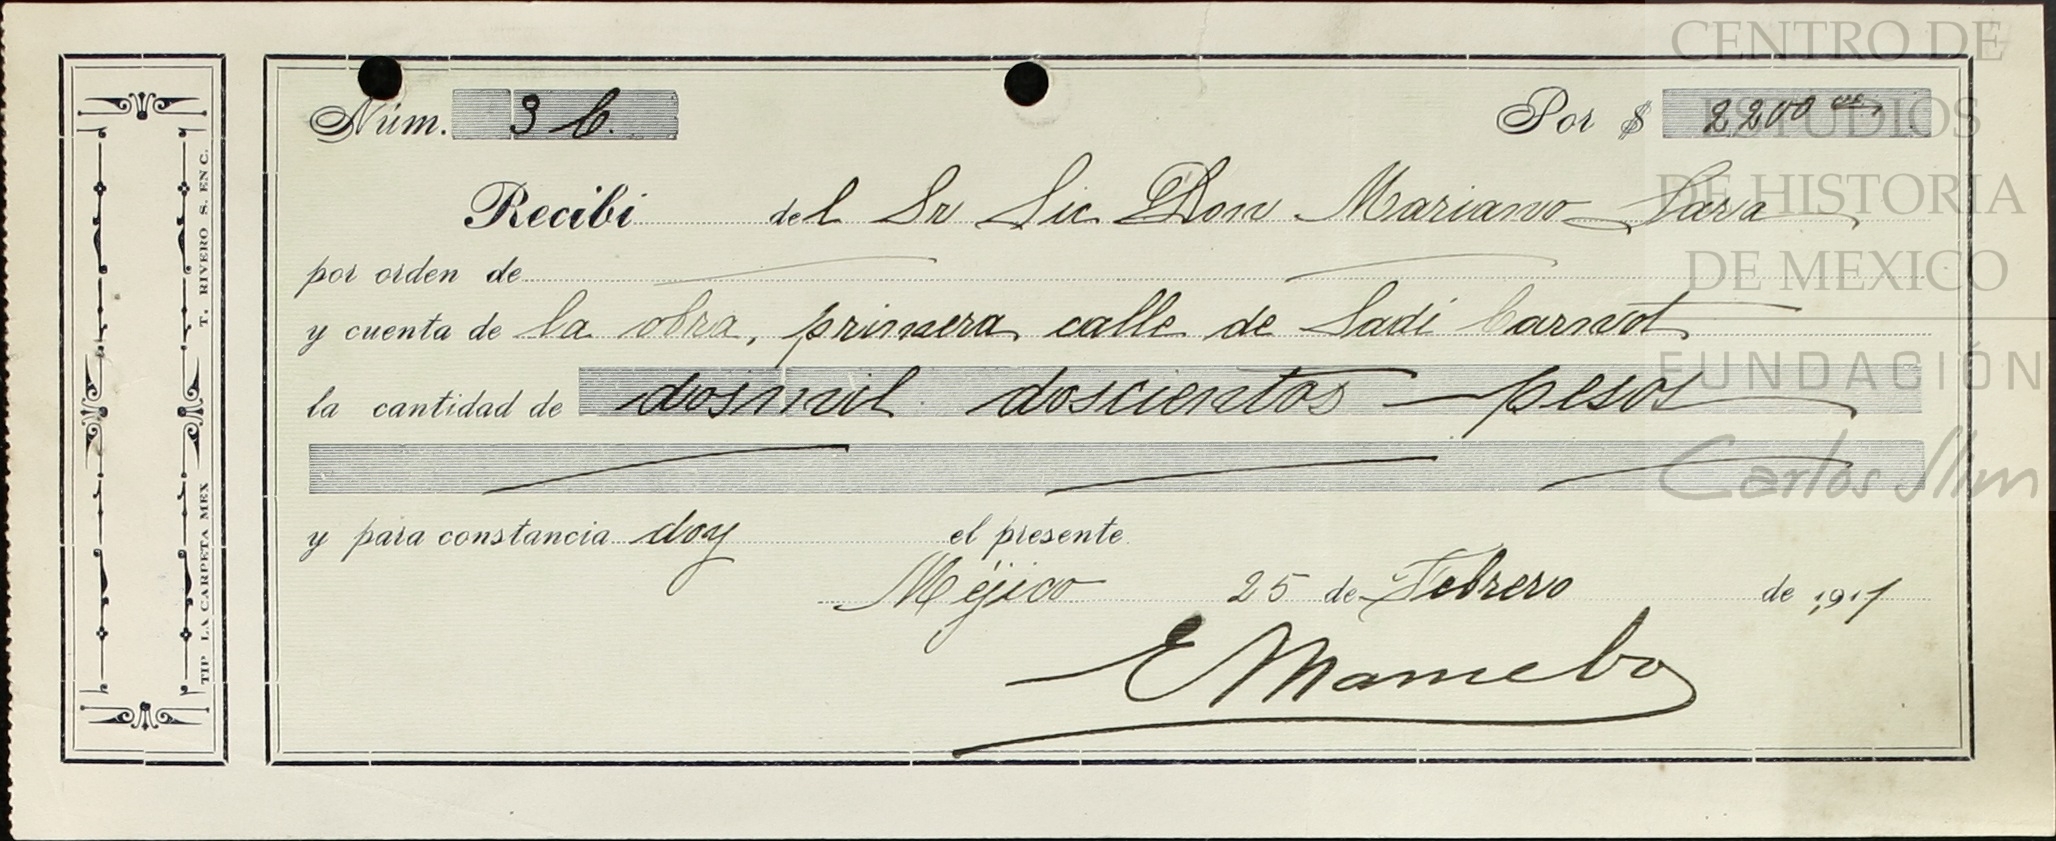 Núm. 3 C.
Por $ 2200 00
Recibí del Sr Lic Don Mariano Lara
por orden de
y cuenta de la obra, primera calle de Sadi Carnot
la cantidad de dosmil doscientos pesos
y para constancia doy el presente
Méjico 25 de Febrero de 1911
E
TIP LA CARPETA MEX T. RIVERO S. EN C.
CENTRO DE
ESTUDIOS
DE HISTORIA
DE MEXICO
FUNDACIÓN
Carlos Slim